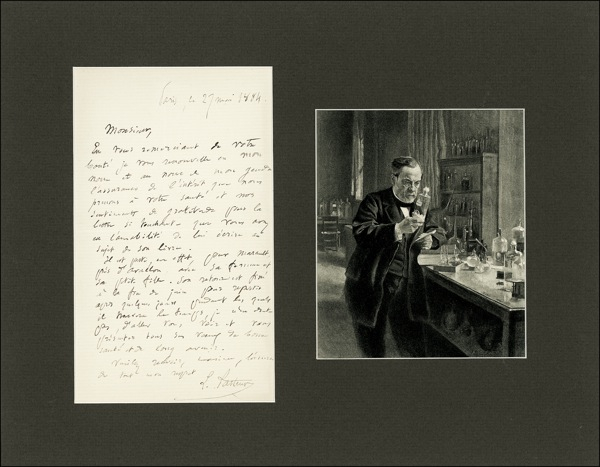 Paris, le 27 mai 1884.
Monsieur,
En vous remerciant de votre
bonté je vous renouvelle en mon
nom et au nom de mon gendre
l'assurance de l'intérêt que nous
prenons à votre santé et nos
sentiments de gratitude pour la
lettre si touchante que vous avez
eu l'amabilité de lui écrire au
sujet de son livre.
Il est parti, en effet, pour
près d'Avallon avec sa femme et
sa petite fille. Son retour est fixé
à la fin de juin pour repartir
après quelques jours
pas, d'aller vous voir et vous
présenter tous ses vœux de bonne
santé et de long avenir.
Veuillez agréer, monsieur,
de tout mon respect
L. Pasteur